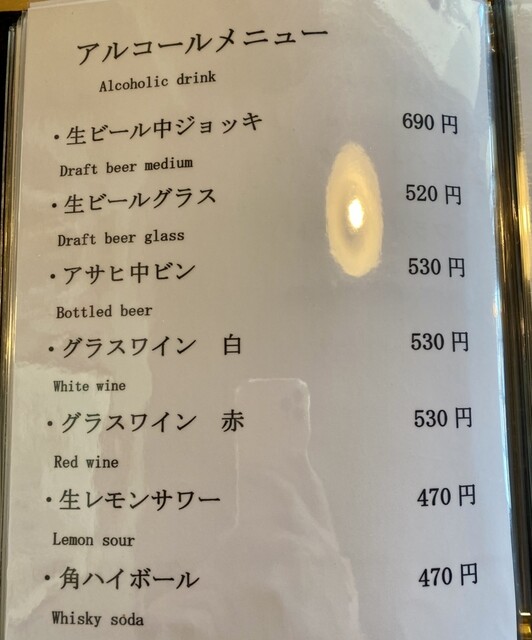 アルコールメニュー
Alcoholic drink
・生ビール中ジョッキ 690円
Draft beer medium
・生ビールグラス 520円
Draft beer glass
・アサヒ中ビン 530円
Bottled beer
・グラスワイン　白 530円
White wine
・グラスワイン　赤 530円
Red wine
・生レモンサワー 470円
Lemon sour
・角ハイボール 470円
Whisky soda